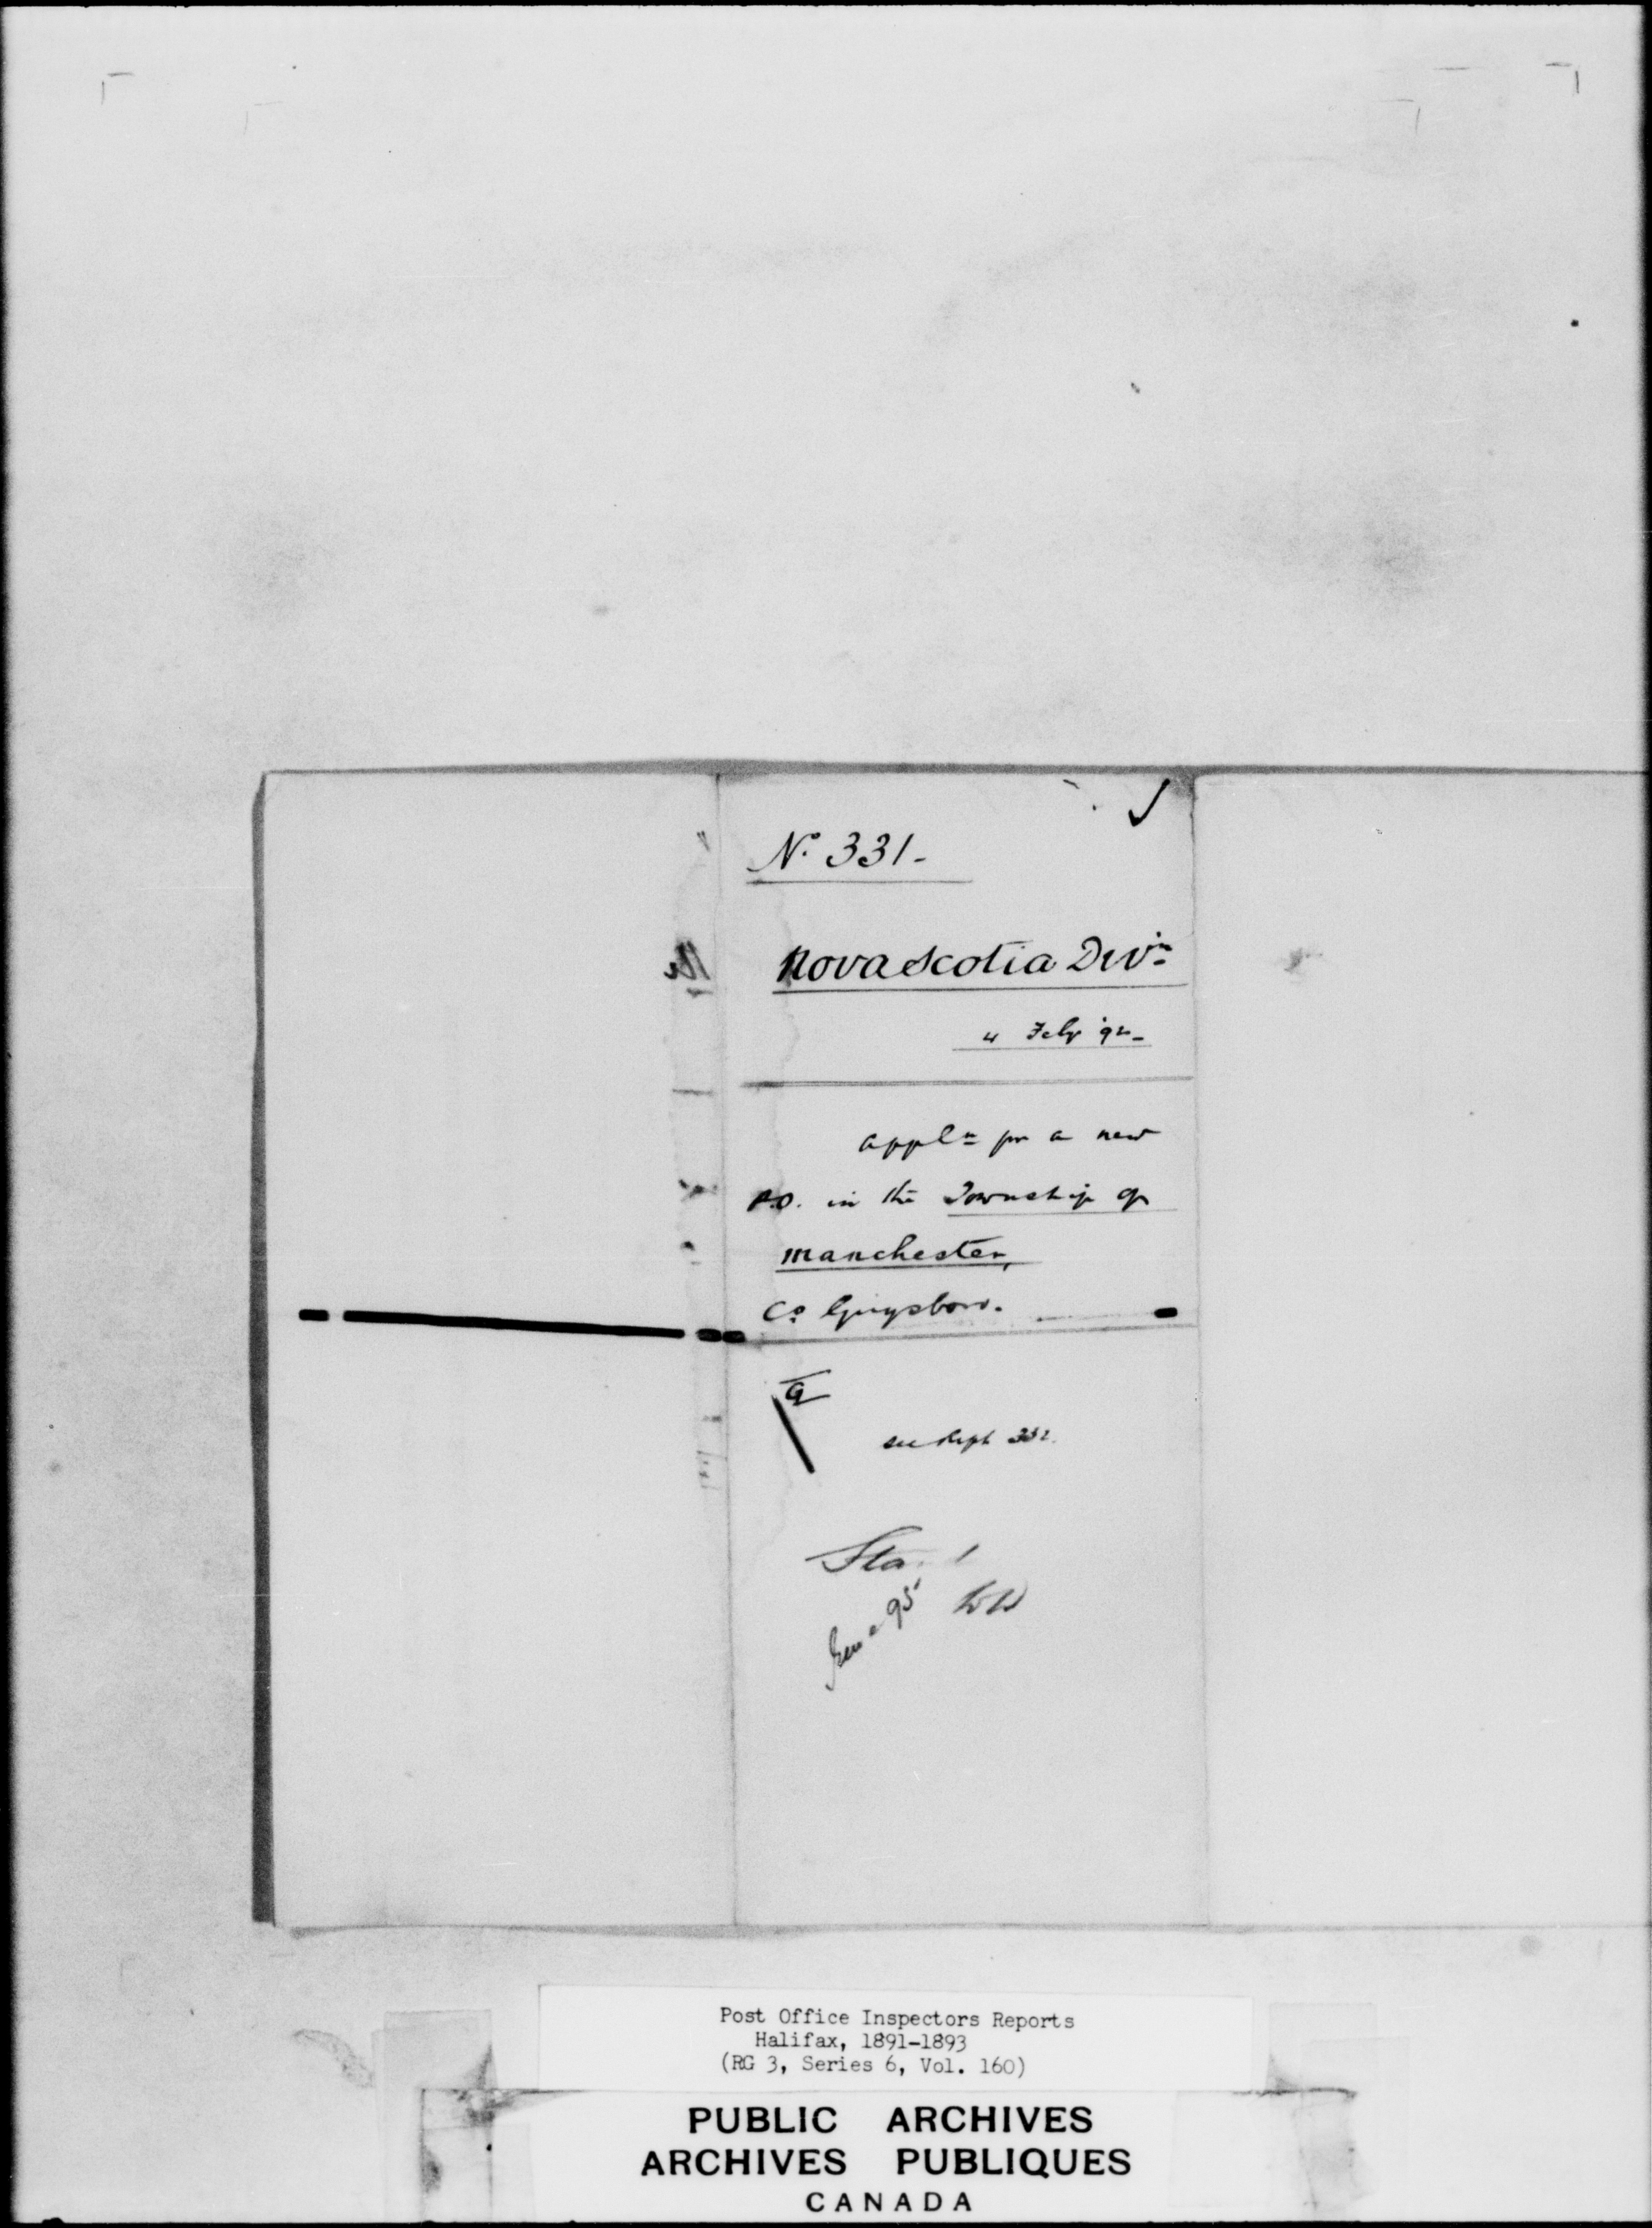 No. 331-
Nova Scotia Divn
4 Feby '92-
appln for a new
P.O. in the Township of
Manchester,
Co Guysboro.
see Rept 332
Post Office Inspectors Reports
Halifax, 1891-1893
(RG 3, Series 6, Vol. 160)
PUBLIC ARCHIVES
ARCHIVES PUBLIQUES
CANADA